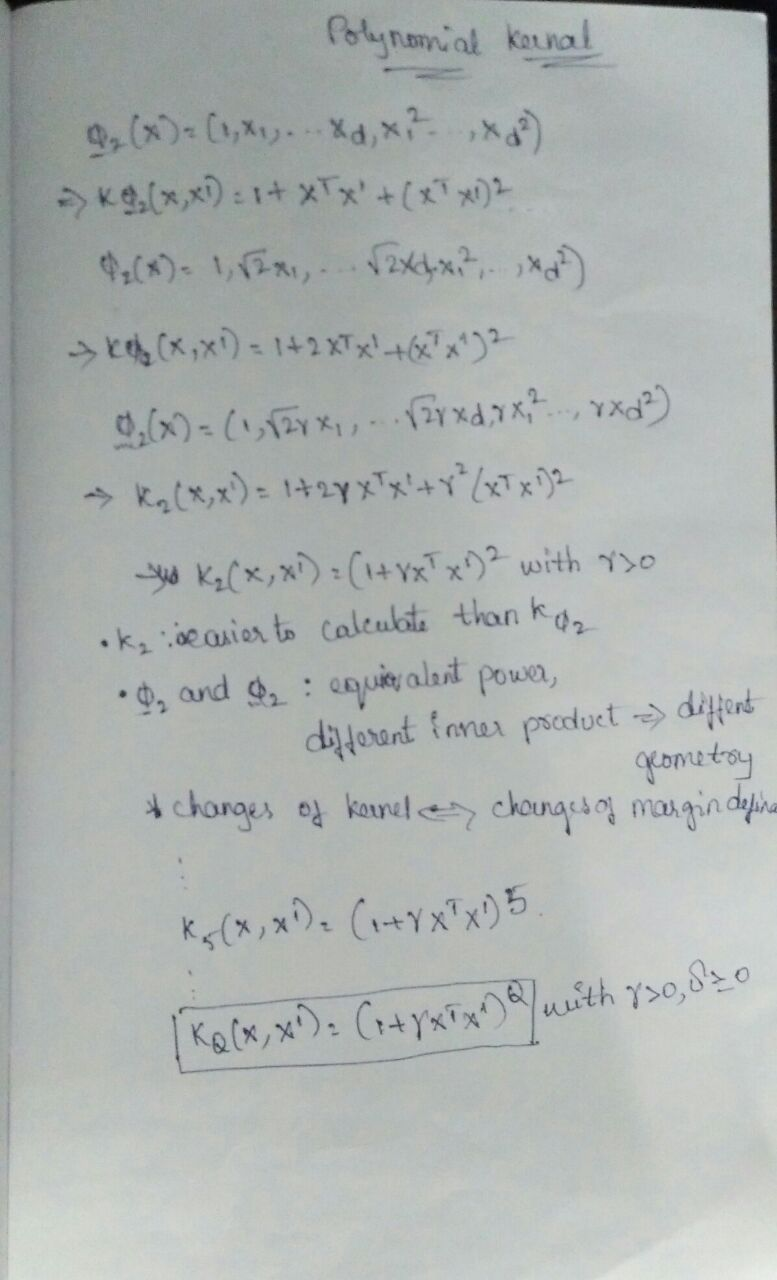 Polynomial kernal
Φ₂(x) = (1, x₁, ... xd, x₁² ..., xd²)
⇒ KΦ₂(x, x') = 1 + xᵀx' + (xᵀx')²
Φ₂(x) = 1, √2x₁, ... √2xd, x₁², ..., xd²)
→ KΦ₂(x, x') = 1 + 2xᵀx' + (xᵀx')²
Φ₂(x) = (1, √2γx₁, ... √2γxd, γx₁² ..., γxd²)
→ K₂(x, x') = 1 + 2γxᵀx' + γ²(xᵀx')²
→ K₂(x, x') = (1 + γxᵀx')² with γ>0
• K₂ : easier to calculate than KΦ₂
• Φ₂ and Φ₂ : equivalent power,
different inner product ⇒ diffent
geometry
* changes of kernel ⇔ changes of margin define
⋮
K₅(x, x') = (1 + γxᵀx')⁵
⋮
KQ(x, x') = (1 + γxᵀx')^Q with γ>0, δ≥0